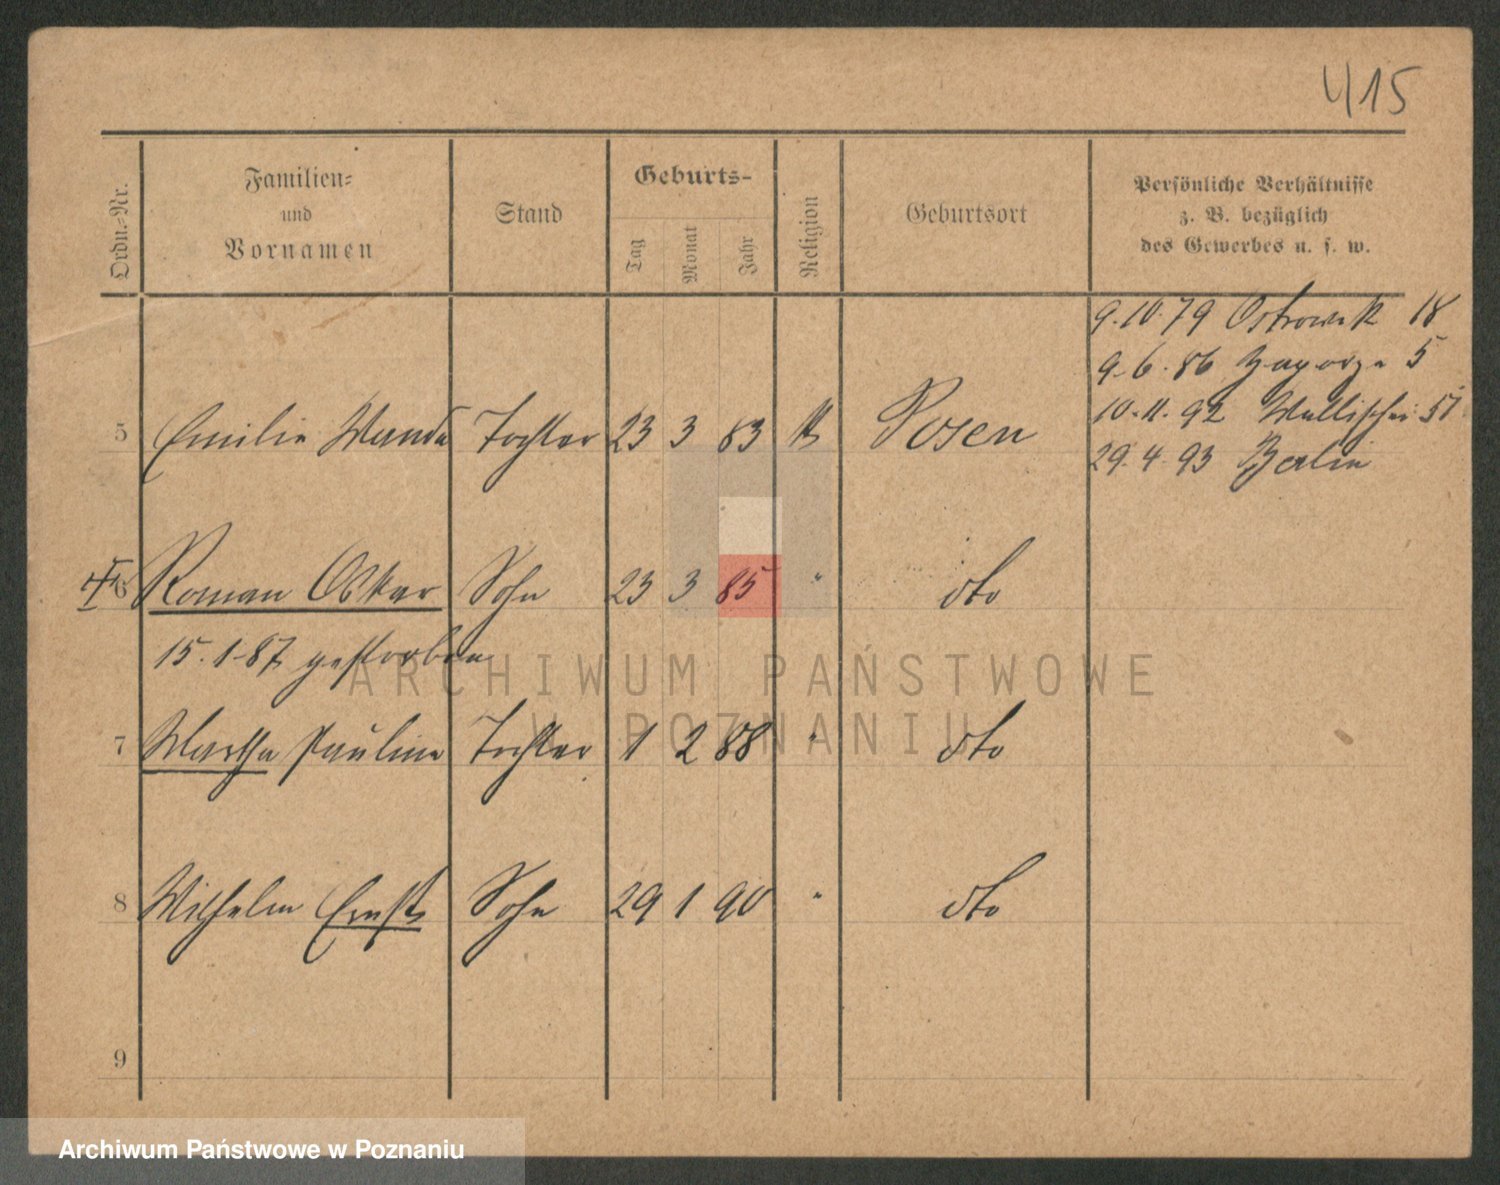 415
Ordn.-Nr.
Familien-
und
Vornamen
Stand
Geburts-
Tag
Monat
Jahr
Religion
Geburtsort
Persönliche Verhältnisse
z. B. bezüglich
des Gewerbes u. s. w.
9.10.79 Ostrowek 18
9.6.86 Zagorze 5
10.11.92 Wallischei 51
29.4.93 Berlin
5 Emilie Wanda Tochter 23 3 83 Posen
6 Roman Oskar Sohn 23 3 85 " dto
15.1.87 gestorben
7 Martha Pauline Tochter 1 2 88 " dto
8 Wilhelm Ernst Sohn 29 1 90 " dto
9
ARCHIWUM PAŃSTWOWE
W POZNANIU
Archiwum Państwowe w Poznaniu